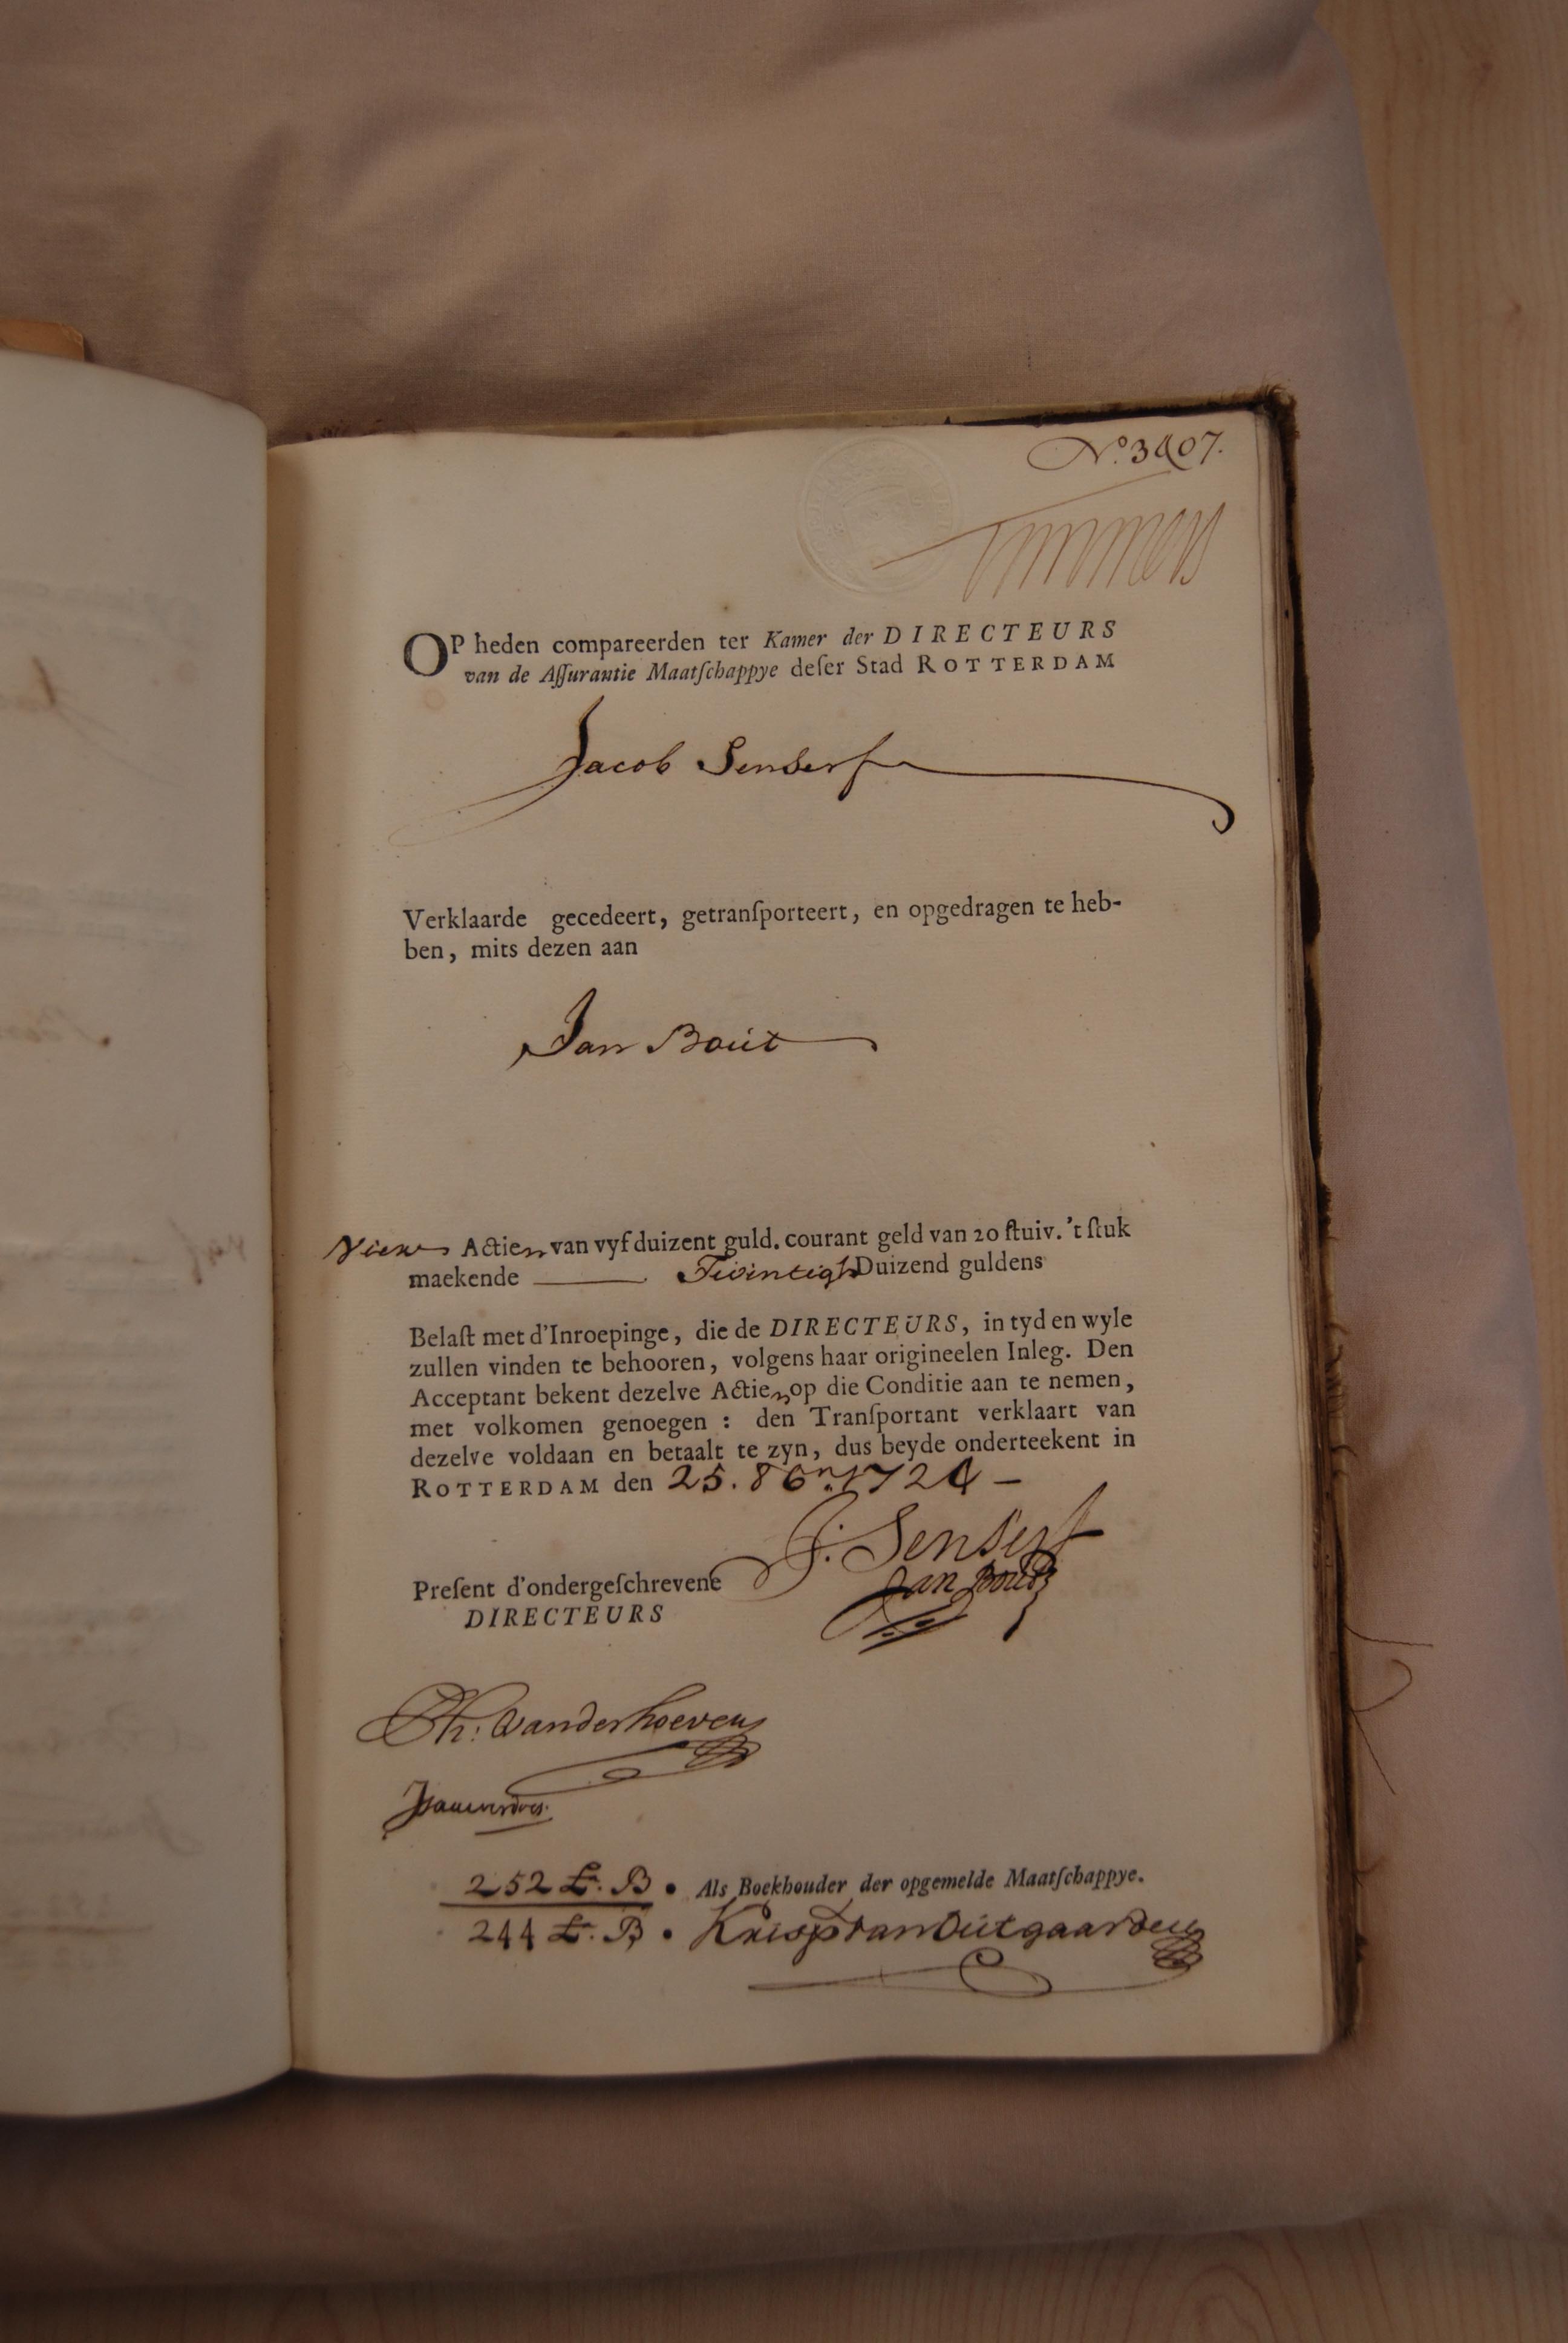 No. 3407.
Timmers
OP heden compareerden ter Kamer der DIRECTEURS
van de Aſſurantie Maatſchappye deſer Stad ROTTERDAM
Jacob Senserf
Verklaarde gecedeert, getranſporteert, en opgedragen te heb-
ben, mits dezen aan
Jan Boüt
Vier Actien van vyf duizent guld. courant geld van 20 ſtuiv. 't ſtuk
maekende Twintigh Duizend guldens
Belaſt met d'Inroepinge, die de DIRECTEURS, in tyd en wyle
zullen vinden te behooren, volgens haar origineelen Inleg. Den
Acceptant bekent dezelve Actien op die Conditie aan te nemen,
met volkomen genoegen : den Tranſportant verklaart van
dezelve voldaan en betaalt te zyn, dus beyde onderteekent in
ROTTERDAM den 25. 8br. 1724 –
J: Senserf
Preſent d'ondergeſchrevene Jan Bout
DIRECTEURS
Th: Vanderhoeven
252 L. B • Als Boekhouder der opgemelde Maatſchappye.
244 L. B • Krisp van Uitgaarden